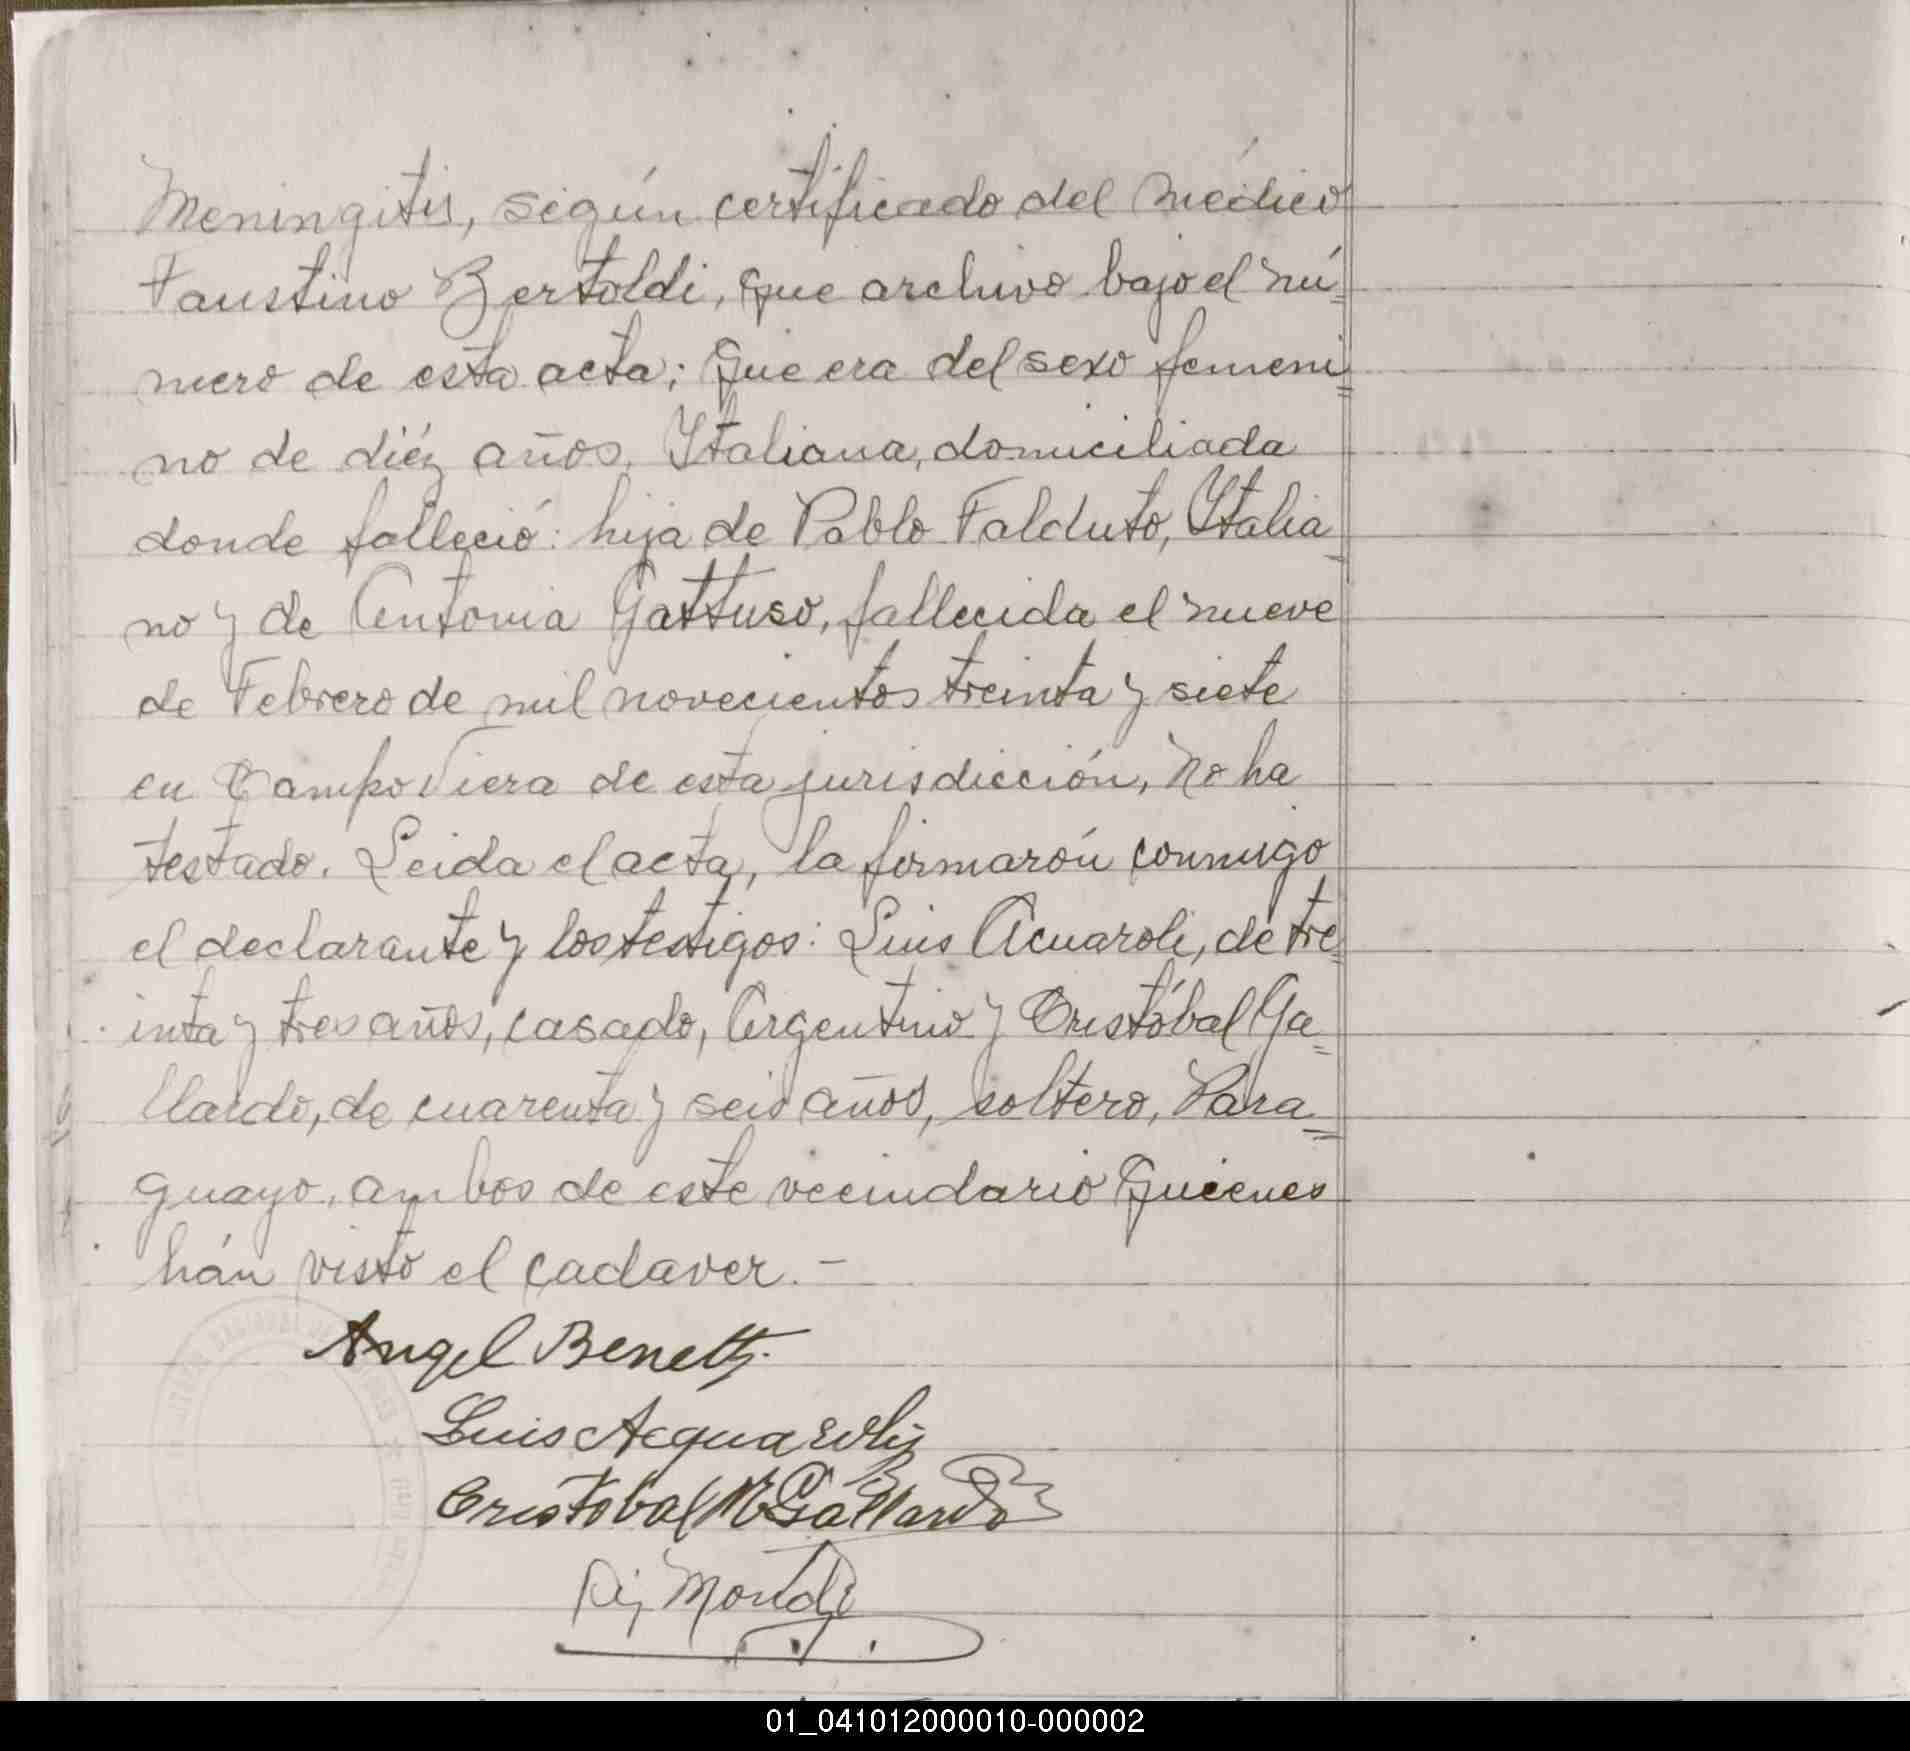 Meningitis, según certificado del médico
Faustino Bertoldi, que archivo bajo el nú=
mero de esta acta; que era del sexo femeni=
no de diéz años, Italiana, domiciliada
donde falleció: hija de Pablo Falduto, Italia=
no y de Antonia Gattuso, fallecida el nueve
de Febrero de mil novecientos treinta y siete
en Campo Viera de esta jurisdicción, no ha
testado. Leida el acta, la firmarón conmigo
el declarante y los testigos: Luis Acuaroli, de tre=
inta y tres años, casado, Argentino y Cristóbal Ga=
llardo, de cuarenta y seis años, soltero, Para=
guayo, ambos de este vecindario quienes
hán visto el cadaver. -
Angel Benetti
Luis Acquaroli
Cristobal M Gallardo
01_041012000010-000002